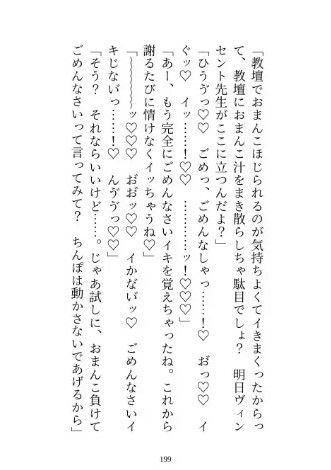 「教壇でおまんこほじられるのが気持ちよくてイきまくったからっ
て、教壇におまんこ汁をまき散らしちゃ駄目でしょ？　明日ヴィン
セント先生がここに立つんだよ？」
「ひうゔっ♡♡　ごめっ、ごめんなしゃっ……！♡　おっ♡♡　イ
ぐッ♡　イッ……！♡♡　………………ッ！♡♡♡」
「あー、もう完全にごめんなさいイキを覚えちゃったね。これから
謝るたびに情けなくイッちゃうね♡」
「～～～～ッ♡♡♡　お゙おッ♡♡　イかな゙いッ♡　ごめんなさいイ
キじな゙いっ……！♡　んゔゔっ♡♡」
「そう？　それならいいけど……。じゃあ試しに、おまんこ負けて
ごめんなさいって言ってみて？　ちんぽは動かさないであげるから」
199